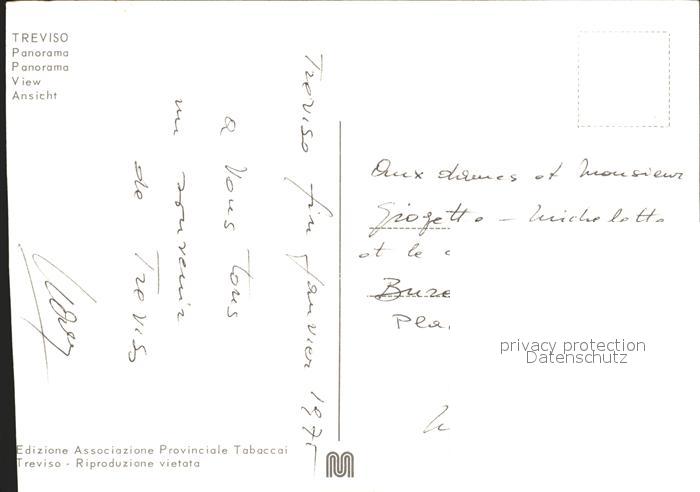 TREVISO
Panorama
Panorama
View
Ansicht
Treviso fin janvier 197
a vous tous
un souvenir
de Treviso
Aux dames et Monsieur
Giogetto - Micheletto
et le
Bure
Pla
privacy protection
Datenschutz
Edizione Associazione Provinciale Tabaccai
Treviso - Riproduzione vietata